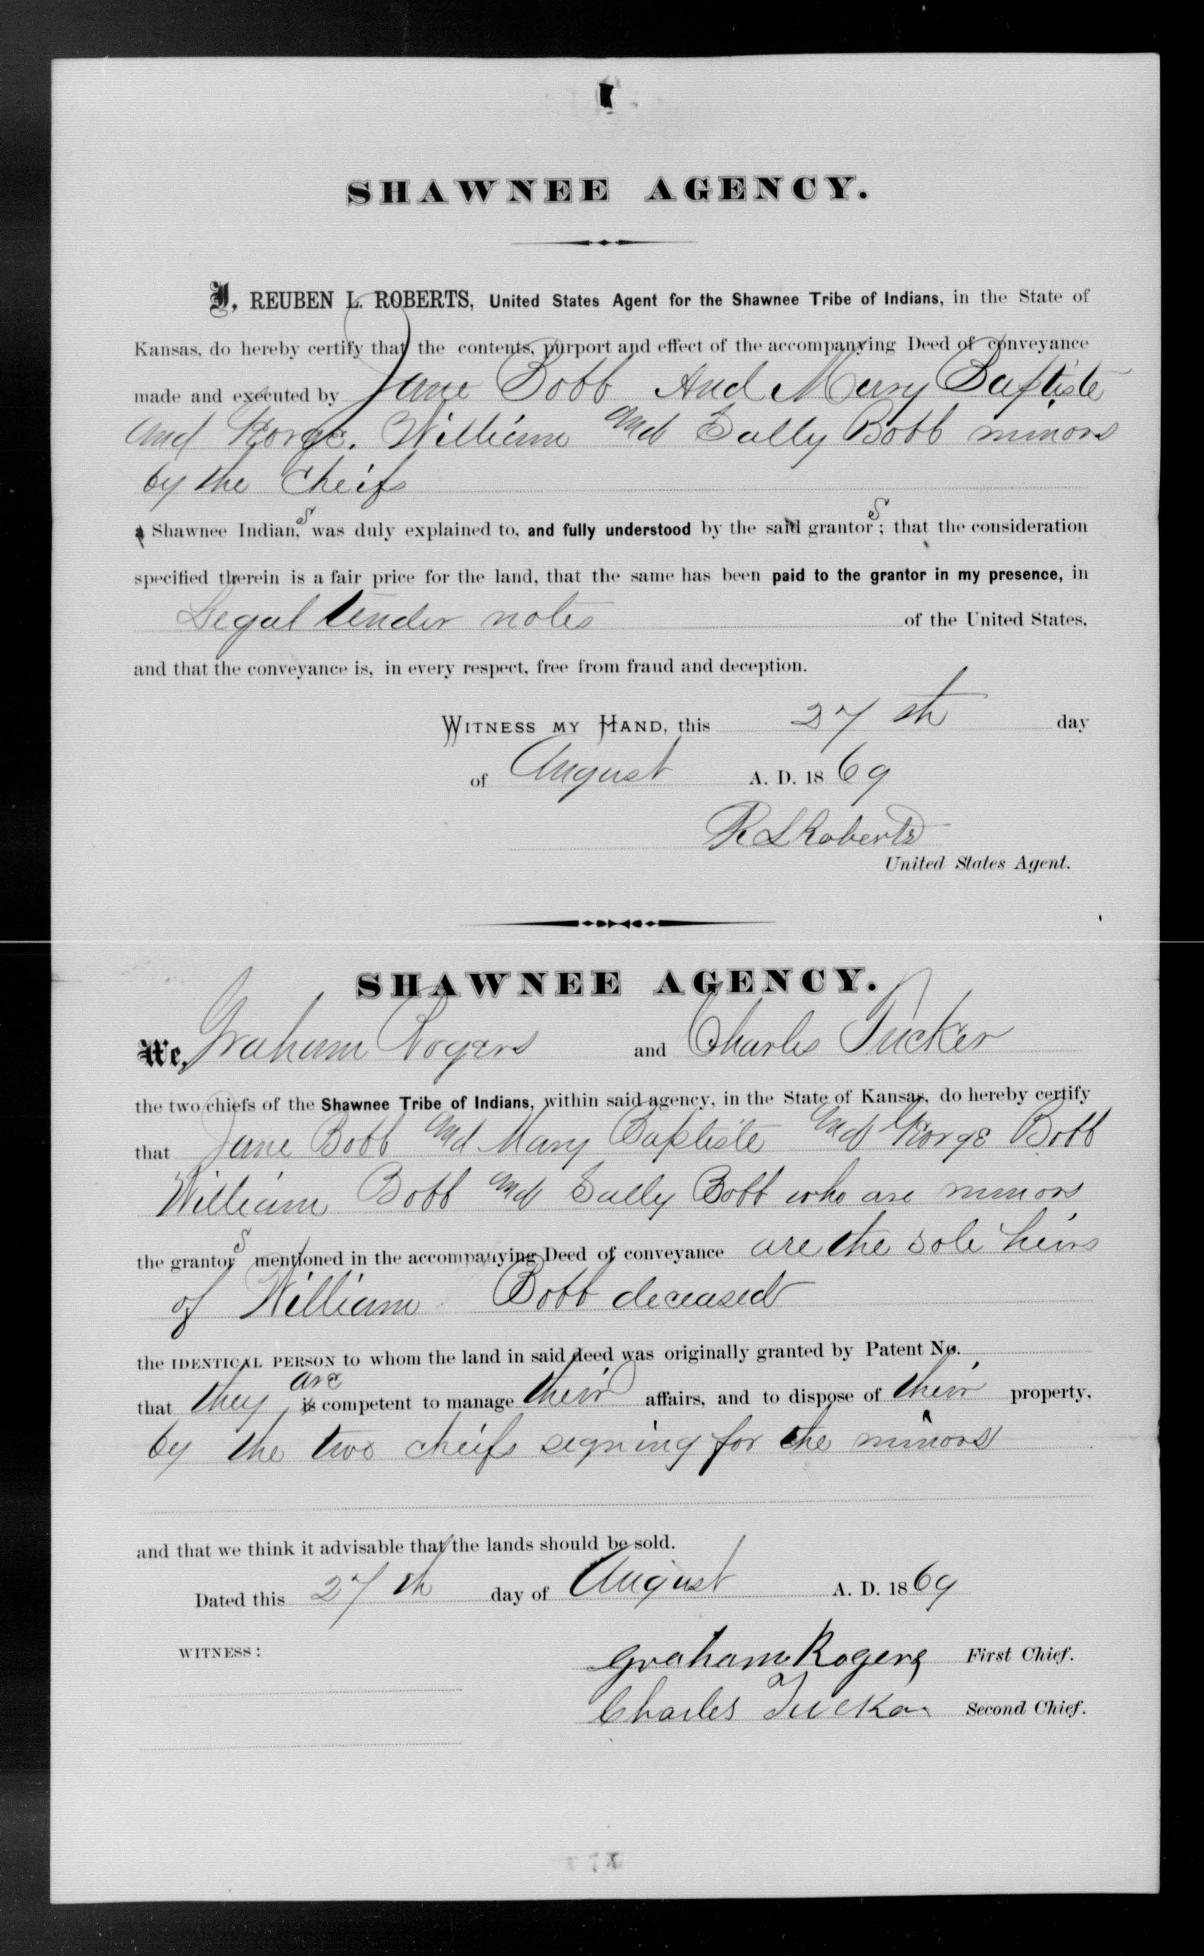 SHAWNEE AGENCY.
I, REUBEN L. ROBERTS, United States Agent for the Shawnee Tribe of Indians, in the State of
Kansas, do hereby certify that the contents, purport and effect of the accompanying Deed of conveyance
made and executed by Jane Bobb And Mary Baptiste
And George. William And Sally Bobb minors
by the Cheifs
a Shawnee Indian,s was duly explained to, and fully understood by the said grantors; that the consideration
specified therein is a fair price for the land, that the same has been paid to the grantor in my presence, in
Legal tender notes of the United States,
and that the conveyance is, in every respect, free from fraud and deception.
WITNESS MY HAND, this 27th day
of August A. D. 1869
R L Roberts
United States Agent.
SHAWNEE AGENCY.
We, Graham Rogers and Charles Tucker
the two chiefs of the Shawnee Tribe of Indians, within said agency, in the State of Kansas, do hereby certify
that Jane Bobb And Mary Baptiste And George Bobb
William Bobb And Sally Bobb who are minors
the grantors mentioned in the accompanying Deed of conveyance are the sole heirs
of William Bobb deceased
the IDENTICAL PERSON to whom the land in said deed was originally granted by Patent No.
that they are is competent to manage their affairs, and to dispose of their property,
by the two cheifs signing for the minors
and that we think it advisable that the lands should be sold.
Dated this 27th day of August A. D. 1869
WITNESS:
Graham Rogers First Chief.
Charles Tucker Second Chief.